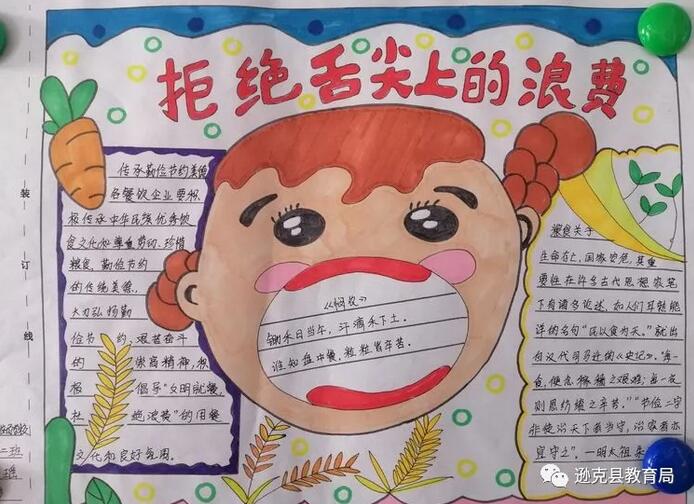 拒绝舌尖上的浪费
传承勤俭节约美德
各餐饮企业要积
极传承中华民族优秀饮
食文化和尊重劳动、珍惜
粮食、勤俭节约
的传统美德,
大力弘扬勤
俭节 约,艰苦奋斗
的 崇高精神,积
极 倡导“文明就餐,
杜 绝浪费”的用餐
文化和良好氛围。
《悯农》
锄禾日当午,汗滴禾下土。
谁知盘中餐,粒粒皆辛苦。
粮食关乎
生命存亡,国家安危,其重
要性在许多古代思想家笔
下有诸多论述,如人们耳熟能
详的名句“民以食为天。”就出
自汉代司马迁的《史记》。“每一
食,便念稼穑之艰难;每一衣
则思纺绩之辛苦。”“节俭二字
非徒治天下者当守,治家者亦
宜守之”,一明太祖朱
装
订
线
二班
瑶
逊克县教育局